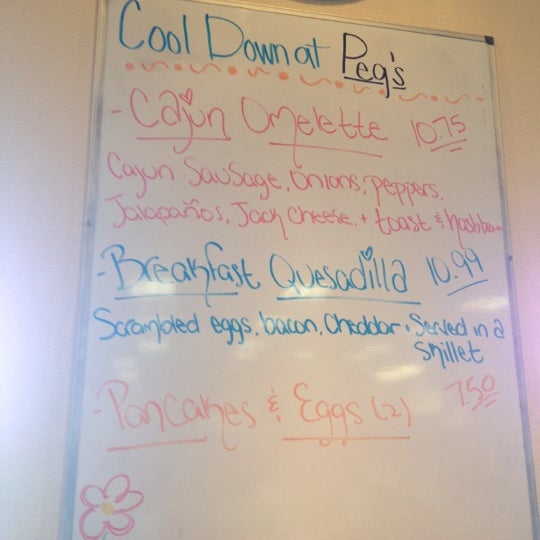 Cool Down at Peg's
- Cajun Omelette 10.75
Cajun Sausage, Onions, peppers,
Jalapaños, Jack Cheese, + toast & hashbrown
- Breakfast Quesadilla 10.99
Scrambled eggs, bacon, Cheddar, Served in a
skillet
- Pancakes & Eggs (2) 7.50